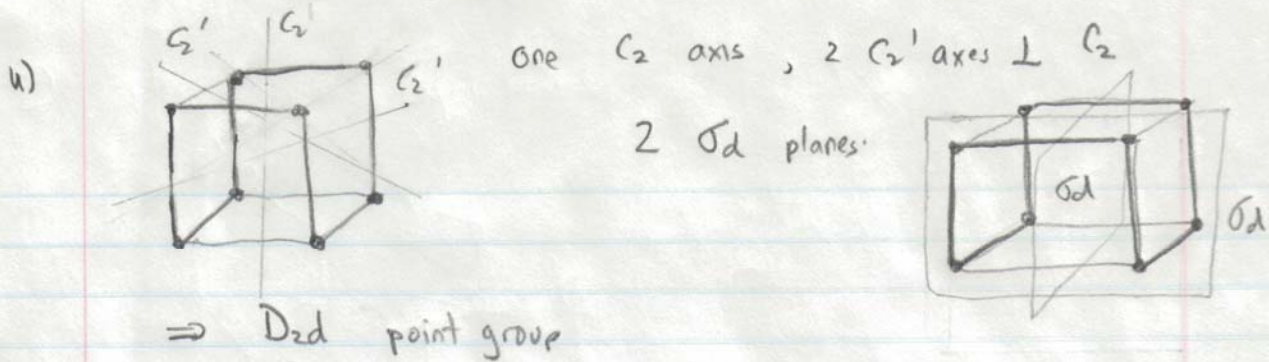 u) C₂' C₂' C₂' one C₂ axis, 2 C₂' axes ⊥ C₂
2 σd planes.
σd σd
⇒ D₂d point group